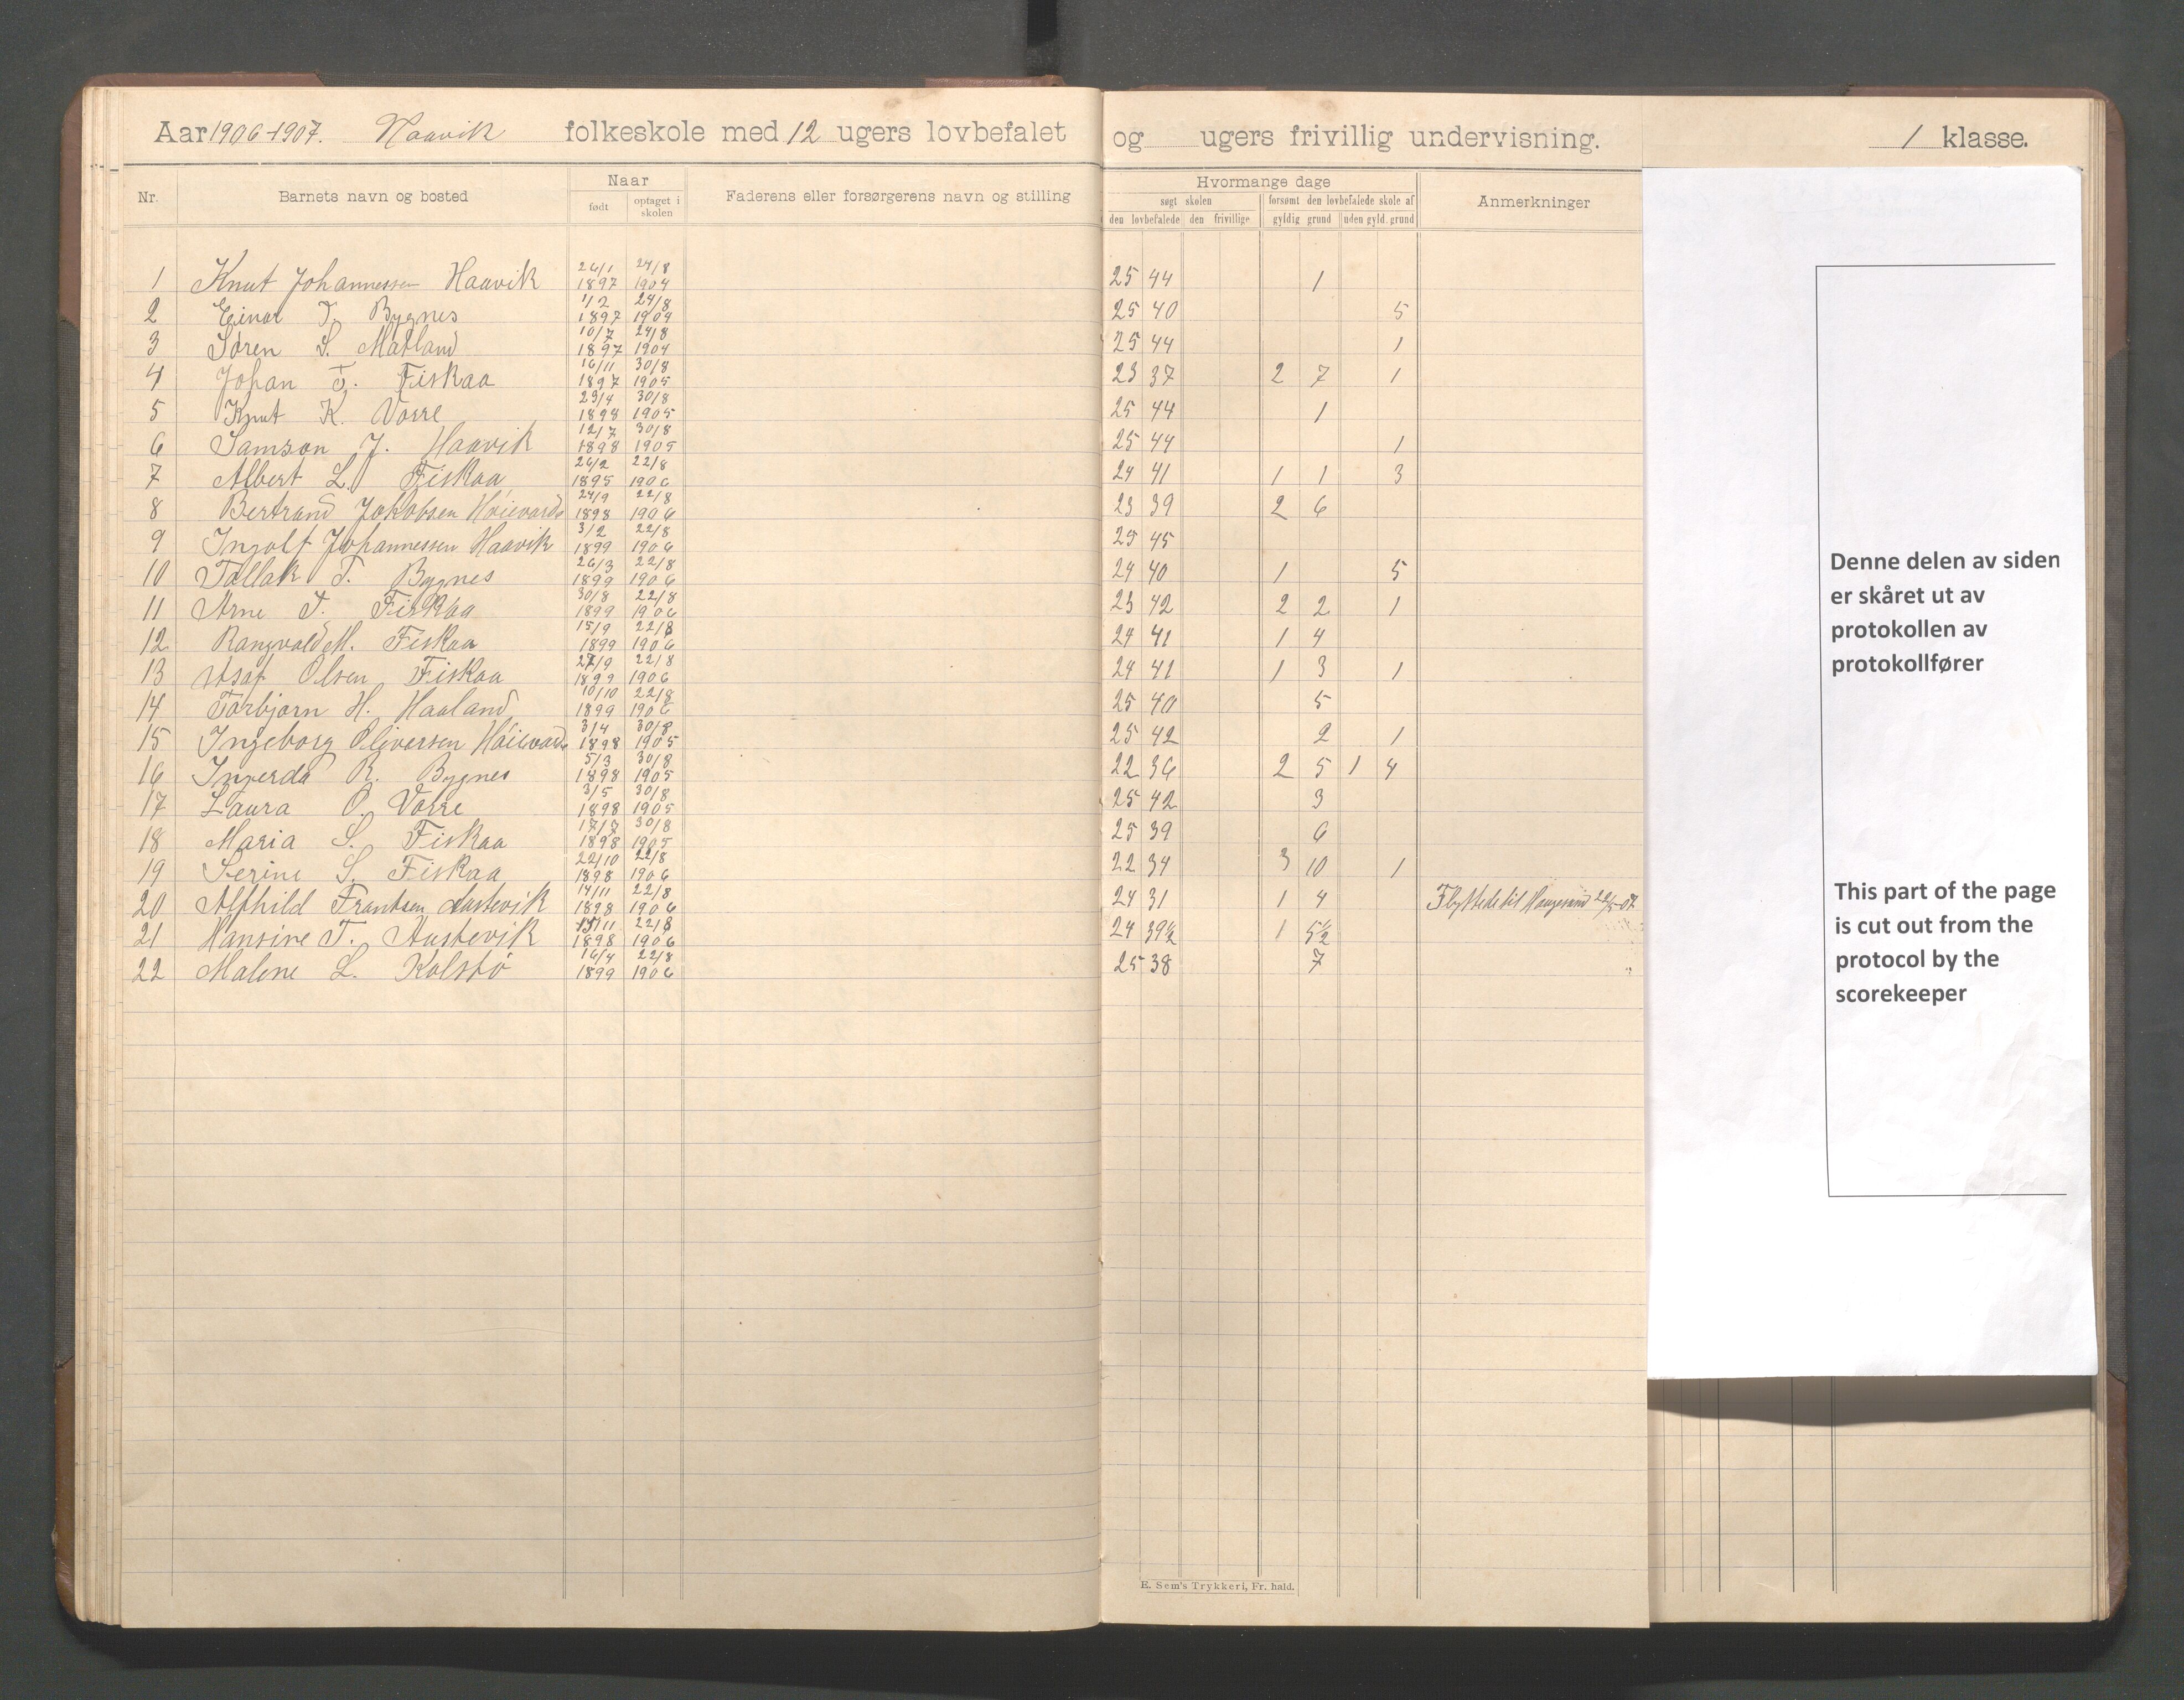 Aar 1906-1907. Haavik folkeskole med 12 ugers lovbefalet og ugers frivillig undervisning. 1 klasse.
Nr. Barnets navn og bosted Naar Faderens eller forsørgerens navn og stilling Hvormange dage Anmerkninger
født optaget i skolen søgt skolen forsømt den lovbefalede skole af
den lovbefalede den frivillige gyldig grund uden gyld. grund
1 Knut Johannessen Haavik 26/1 1897 24/8 1904 25 44 1
2 Einar T. Bygnes 1/2 1897 24/8 1904 25 40 5
3 Søren S. Matland 10/7 1897 24/8 1904 25 44 1
4 Johan T. Fiskaa 16/11 1897 30/8 1905 23 37 2 7 1
5 Knut K. Vorre 23/4 1898 30/8 1905 25 44 1
6 Samson J. Haavik 12/7 1898 30/8 1905 25 44 1
7 Albert L. Fiskaa 26/2 1895 22/8 1906 24 41 1 1 3
8 Bertrand Jakobsen Høievarde 24/9 1898 22/8 1906 23 39 2 6
9 Ingolf Johannessen Haavik 3/2 1899 22/8 1906 25 45
10 Tallak T. Bygnes 26/3 1899 22/8 1906 24 40 1 5
11 Arne T. Fiskaa 30/8 1899 22/8 1906 23 42 2 2 1
12 Rangvald M. Fiskaa 15/9 1899 22/8 1906 24 41 1 4
13 Asaf Olsen Fiskaa 27/9 1899 22/8 1906 24 41 1 3 1
14 Torbjørn H. Haaland 10/10 1899 22/8 1906 25 40 5
15 Ingeborg Oliversen Høievarde 3/4 1898 30/8 1905 25 42 2 1
16 Ingerda R. Bygnes 5/3 1898 30/8 1905 22 36 2 5 1 4
17 Laura O. Vorre 3/5 1898 30/8 1905 25 42 3
18 Maria S. Fiskaa 17/7 1898 30/8 1905 25 39 6
19 Serine S. Fiskaa 22/10 1898 22/8 1906 22 34 3 10 1
20 Alfhild Frantsen Austevik 14/11 1898 22/8 1906 24 31 1 4 Flyttede til Haugesund 22/5-07
21 Hansine T. Austevik 15/11 1898 22/8 1906 24 39½ 1 5½
22 Malene L. Kolstø 16/4 1899 22/8 1906 25 38 7
E. Sem's Trykkeri, Fr. hald.
Denne delen av siden
er skåret ut av
protokollen av
protokollfører
This part of the page
is cut out from the
protocol by the
scorekeeper